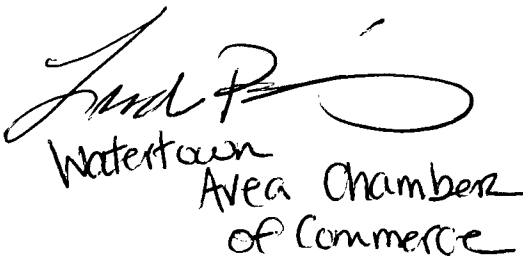 Watertown
Area Chamber
of Commerce